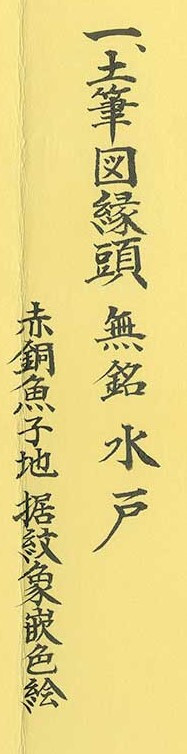 一、土筆図縁頭 無銘 水戸
赤銅魚子地 据紋象嵌色絵